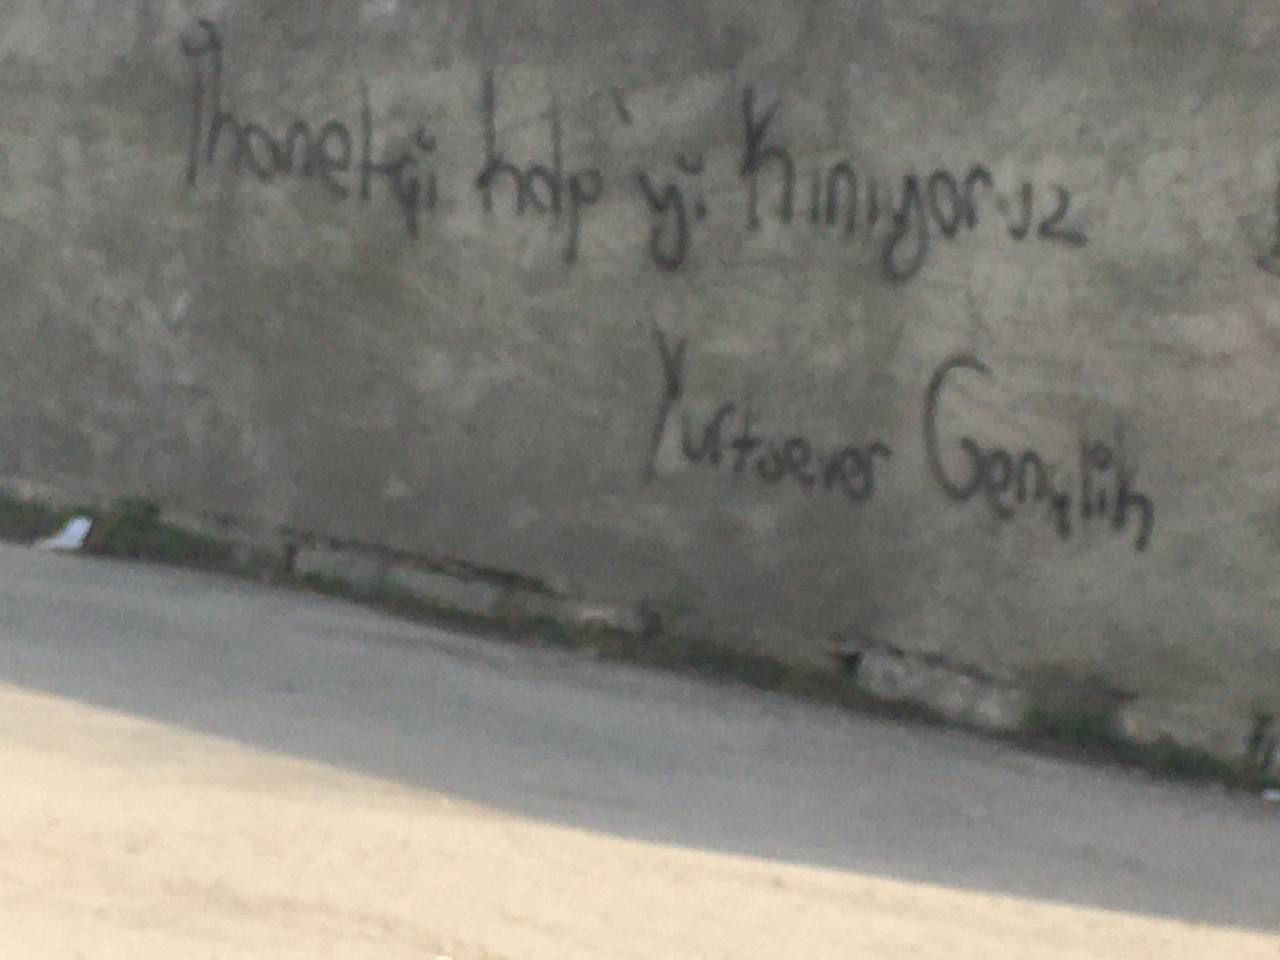 İhanetçi hdp'yi Kınıyoruz
Yurtsever Gençlik